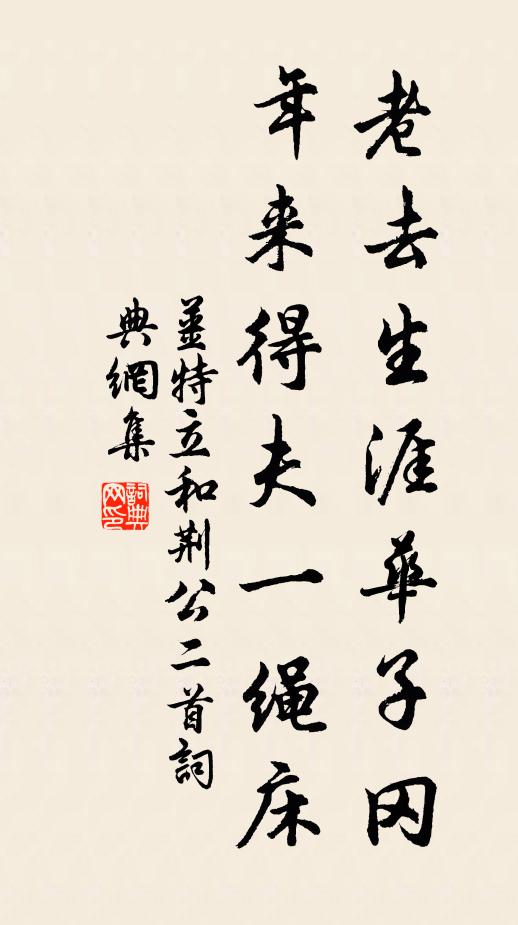 老去生涯華子冈
年来得夫一绳床
薑特立和荆公二首詞
典網集
詞典
网印